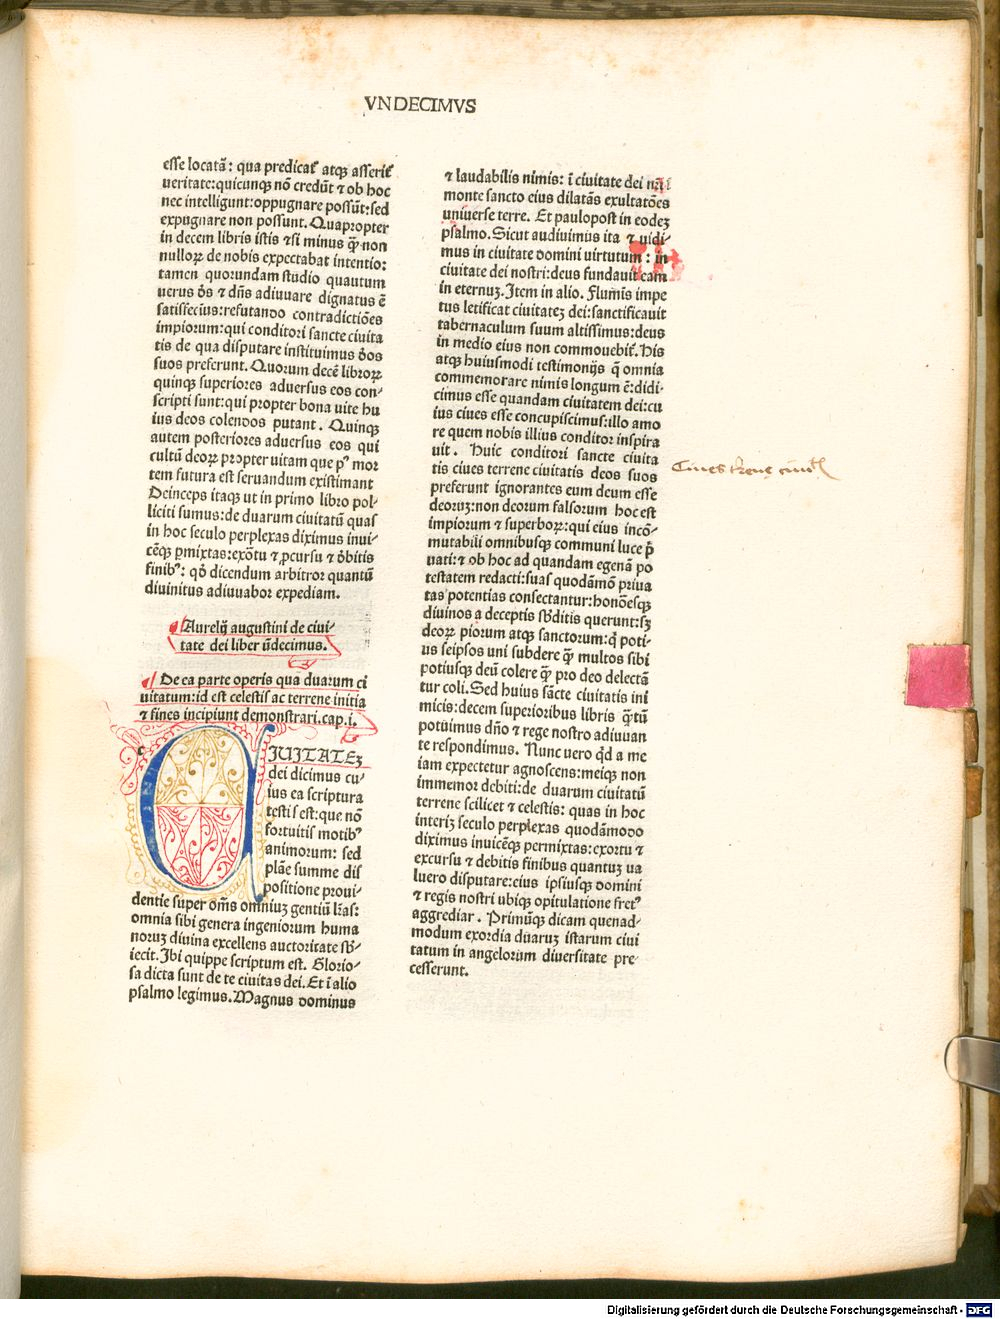 VNDECIMVS
esse locatã: qua predicat᷒ atqꝫ asserit᷒
veritate:quicunqꝫ nõ credũt ⁊ ob hoc
nec intelligunt:oppugnare possũt:sed
expugnare non possunt. Quapropter
in decem libris istis ⁊si minus q̃ꝫ non
nulloꝝ de nobis expectabat intentio:
tamen quorundam studio quautum
uerus ðs ⁊ dñs adiuuare dignatus ẽ
satisfecius:refutando contradictiões
impiorum:qui conditori sancte ciuita
tis de qua disputare instituimus ðos
suos preferunt. Quorum decẽ libroꝝ
quinqꝫ superiores aduersus eos con⸗
scripti sunt:qui propter bona uite hu
ius deos colendos putant. Quinqꝫ
autem posteriores aduersus eos qui
cultũ deoꝝ propter uitam que pꝰ mor
tem futura est seruandum existimant
Deinceps itaqꝫ ut in primo libro pol⸗
liciti sumus:de duarum ciuitatũ quas
in hoc seculo perplexas diximus inui⸗
cẽqꝫ ꝑmixtas:exõtu ⁊ ꝓcursu ⁊ ðbitis
finibꝰ: qð dicendum arbitror quantũ
diuinitus adiuuabor expediam.
Aurelij augustini de ciui⸗
tate dei liber ũdecimus.
De ea parte operis qua duarum ci
uitatum:id est celestis ac terrene initia
⁊ fines incipiunt demonstrari.cap.i.
c
IUITATEꝫ
dei dicimus cu⸗
ius ea scriptura
testis est:que nõ
fortuitis motibꝰ
animorum: sed
plãe summe dis
positione proui⸗
dentie super oṁs omniuꝫ gentiũ lr̃as:
omnia sibi genera ingeniorum huma
noruꝫ diuina excellens auctoritate sb̃⸗
iecit. Ibi quippe scriptum est. Glorio⸗
sa dicta sunt de te ciuitas dei. Et ĩ alio
psalmo legimus. Magnus dominus
⁊ laudabilis nimis: ĩ ciuitate dei nr̃i ĩ
monte sancto eius dilatãs exultatões
uniuerse terre. Et paulopost in eodeꝫ
psalmo. Sicut audiuimus ita ⁊ uidi⸗
mus in ciuitate domini virtutum: in
ciuitate dei nostri:deus fundauit eam
in eternuꝫ. Item in alio. Flumĩs impe
tus letificat ciuitateꝫ dei:sanctificauit
tabernaculum suum altissimus:deus
in medio eius non commouebit᷒. His
atqꝫ huiusmodi testimonijs q̃ omnia
commemorare nimis longum ẽ:didi⸗
cimus esse quandam ciuitatem dei:cu
ius ciues esse concupiscimus:illo amo
re quem nobis illius conditor inspira
uit. Huic conditori sancte ciuita
tis ciues terrene ciuitatis deos suos
preferunt ignorantes eum deum esse
deoruꝫ:non deorum falsorum hoc est
impiorum ⁊ superboꝝ:qui eius incõ⸗
mutabili omnibusqꝫ communi luce p̃
uati:⁊ ob hoc ad quandam egenã po
testatem redacti:suas quodãmõ priua
tas potentias consectantur:honõesqꝫ
diuinos a deceptis sb̃ditis querunt:sꝫ
deoꝝ piorum atqꝫ sanctorum:q̃ poti⸗
us seipsos uni subdere q̃ꝫ multos sibi
potiusqꝫ deũ colere q̃ꝫ pro deo delectã
tur coli. Sed huius sãcte ciuitatis ini
micis:decem superioribus libris q̃tũ
potuimus dño ⁊ rege nostro adiuuan
te respondimus. Nunc uero qð a me
iam expectetur agnoscens:meiqꝫ non
immemor debiti:de duarum ciuitatũ
terrene scilicet ⁊ celestis: quas in hoc
interiꝫ seculo perplexas quodãmodo
diximus inuicẽqꝫ permixtas:exortu ⁊
excursu ⁊ debitis finibus quantuꝫ ua
luero disputare:eius ipsiusqꝫ domini
⁊ regis nostri ubiqꝫ opitulatione fretꝰ
aggrediar. Primũqꝫ dicam quenad⸗
modum exordia duaruꝫ istarum ciui
tatum in angelorum diuersitate pre⸗
cesserunt.
Ciues
Digitalisierung gefördert durch die Deutsche Forschungsgemeinschaft - DFG